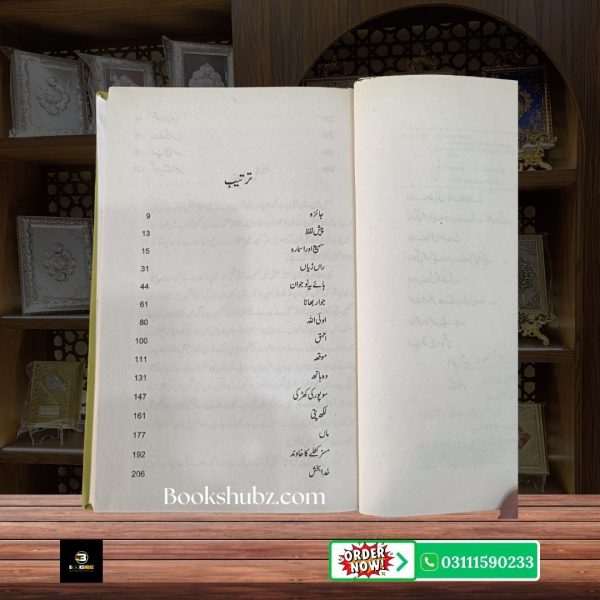 ترتیب
جائزہ 9
پیش لفظ 13
سمیع اور اسمارہ 15
راں ژیاں 31
ہائے یہ نوجوان 44
جوار بھاٹا 61
اوئی اللہ 80
احمق 100
موقعہ 111
وہ ہاتھ 131
سوپور کی کھڑکی 147
لکھ پتی 161
ماں 177
مسز کٹلے کا خاوند 192
خدا بخش 206
Bookshubz.com
ORDER NOW!
03111590233